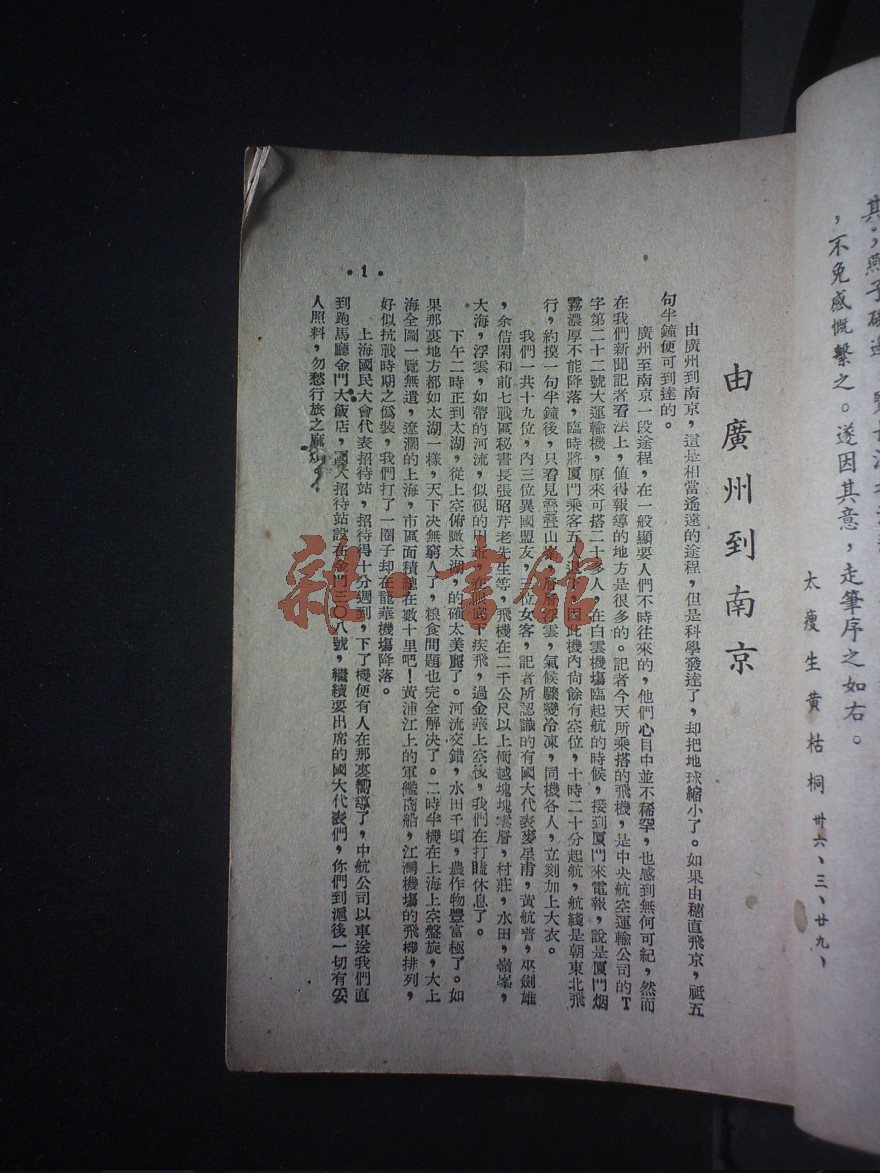 其，燕子磯邊，
，不免感慨繫之。遂因其意，走筆序之如右。
太瘦生黄枯桐卅六、三、廿九、
由廣州到南京
由廣州到南京，這是相當遙遠的途程，但是科學發達了，却把地球縮小了。如果由穗直飛京，祇五
句半鐘便可到達的。
廣州至南京一段途程，在一般顯要人們不時往來的，他們心目中並不稀罕，也感到無何可紀，然而
在我們新聞記者看法上，値得報導的地方是很多的。記者今天所乘搭的飛機，是中央航空運輸公司的T
字第二十二號大運輸機，原來可搭二十多人，在白雲機塲臨起航的時候，接到厦門來電報，說是厦門烟
霧濃厚不能降落，臨時將厦門乘客五人，因此機內尙餘有空位，十時二十分起航，航綫是朝東北飛
行，約摸一句半鐘後，只看見叠叠山巒，層層浮雲，氣候驟變冷凍，同機各人，立刻加上大衣。
我們一共十九位，內三位異國盟友，三位女客，記者所認識的有國大代表麥星甫，黃航普，巫劍雄
，余信閑和前七戰區秘書長張昭芹老先生等，飛機在二千公尺以上衝越塊塊雲層，村莊，水田，嶺峯，
大海，浮雲，如帶的河流，似硯的田莊，在眼底下疾飛，過金華上空後，我們在打瞌休息了。
下午二時正到太湖，從上空俯瞰太湖，的確太美麗了。河流交錯，水田千頃，農作物豐富極了。如
果那裏地方都如太湖一樣，天下決無窮人了，粮食問題也完全解决了。二時半機在上海上空盤旋，大上
海全圖一覽無遺，遼濶的上海，市區面積總在數十里吧！黃浦江上的軍艦商船，江灣機塲的飛機排列，
好似抗戰時期之僞裝，我們打了一圈子却在龍華機塲降落。
上海國民大會代表招待站，招待得十分週到，下了機便有人在那裏嚮導了，中航公司以車送我們直
到跑馬廳金門大飯店，國大招待站設在金門三〇八號，繼續要出席的國大代表們，你們到滬後一切有妥
人照料，勿愁行旅之麻煩。
·1·
雜·書館